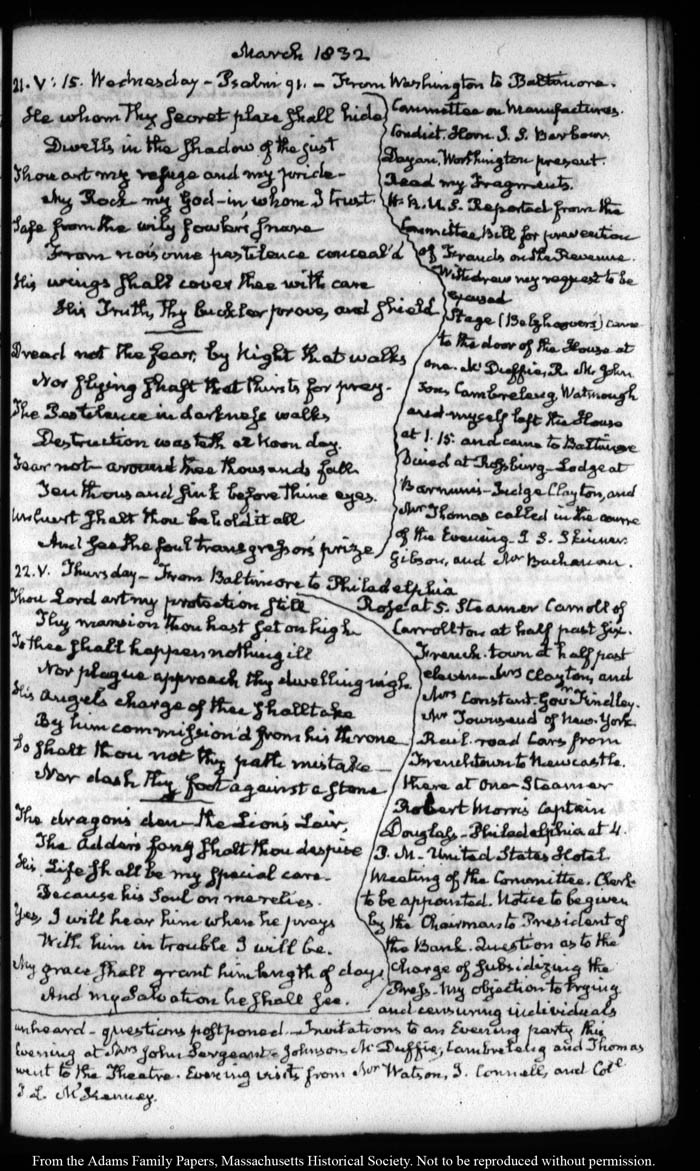 March 1832
21. V: 15. Wednesday - Psalm 91. - From Washington to Baltimore.
He whom Thy secret place shall hide
Dwells in the shadow of the just
Thou art my refuge and my pride -
My Rock my God - in whom I trust.
Safe from the wily fowler's snare
From noisome pestilence conceal'd
His wings shall cover thee with care
His Truth, Thy buckler prove, and shield
Dread not the fear, by Night that walks
Nor flying shaft that thirsts for prey -
The Pestilence in darkness walks
Destruction wasteth at Noon day.
Fear not - around thee thousands fall
Ten thousand sink before thine eyes.
Unhurt shalt thou behold it all
And see the foul transgressor's prize
Committee on Manufactures.
Condict. Horn. J. S. Barbour
Dayan Worthington present.
Read my Fragments.
H. R. U. S. Reported from the
Committee Bill for prevention
of Frauds on the Revenue.
Withdrew my request to be
excused
Stage (Beltzhoover's) came
to the door of the House at
one. McDuffie, R. M. John
son, Cambreleng, Watmough
and myself left the House
at 1. 15. and came to Baltimore
Dined at Rossburg - Lodge at
Barnum's - Judge Clayton, and
Mr Thomas called in the course
of the Evening - J. S. Skinner
Gibson, and Mr Buchanan.
22. V. Thursday - From Baltimore to Philadelphia
Thou Lord art my protection still
Thy mansion thou hast set on high
To thee shall happen nothing ill
Nor plague approach thy dwelling nigh
His Angels charge of thee shall take
By him commission'd from his throne
So shalt thou not thy path mistake -
Nor dash thy foot against a stone
The dragon's den - the Lion's Lair,
The Adder's fang shalt thou despise
His Life shall be my special care -
Because his Soul on me relies.
Yes, I will hear him when he prays
With him in trouble I will be.
My grace shall grant him length of days
And my Salvation he shall see.
Rose at 5. Steamer Carroll of
Carrollton at half past six.
French-town at half past
eleven - Mrs Clayton, and
Mrs Constant. Govr Findley.
Mr Townsend of New-York.
Rail-road Cars from
Frenchtown to Newcastle.
there at One - Steamer
Robert Morris Captain
Douglass - Philadelphia at 4.
P. M. - United States Hotel.
Meeting of the Committee. Clerk
to be appointed. Notice to be given
by the Chairman to President of
the Bank. Question as to the
charge of subsidizing the
Press - My objection to trying
and censuring individuals
unheard - questions postponed. - Invitations to an Evening party this
Evening at Mrs John Sergeant's - Johnson, McDuffie, Cambreleng and Thomas
went to the Theatre. Evening visits from Mr Watson, J. Connell, and Coll
T. L. McKenney.
From the Adams Family Papers, Massachusetts Historical Society. Not to be reproduced without permission.